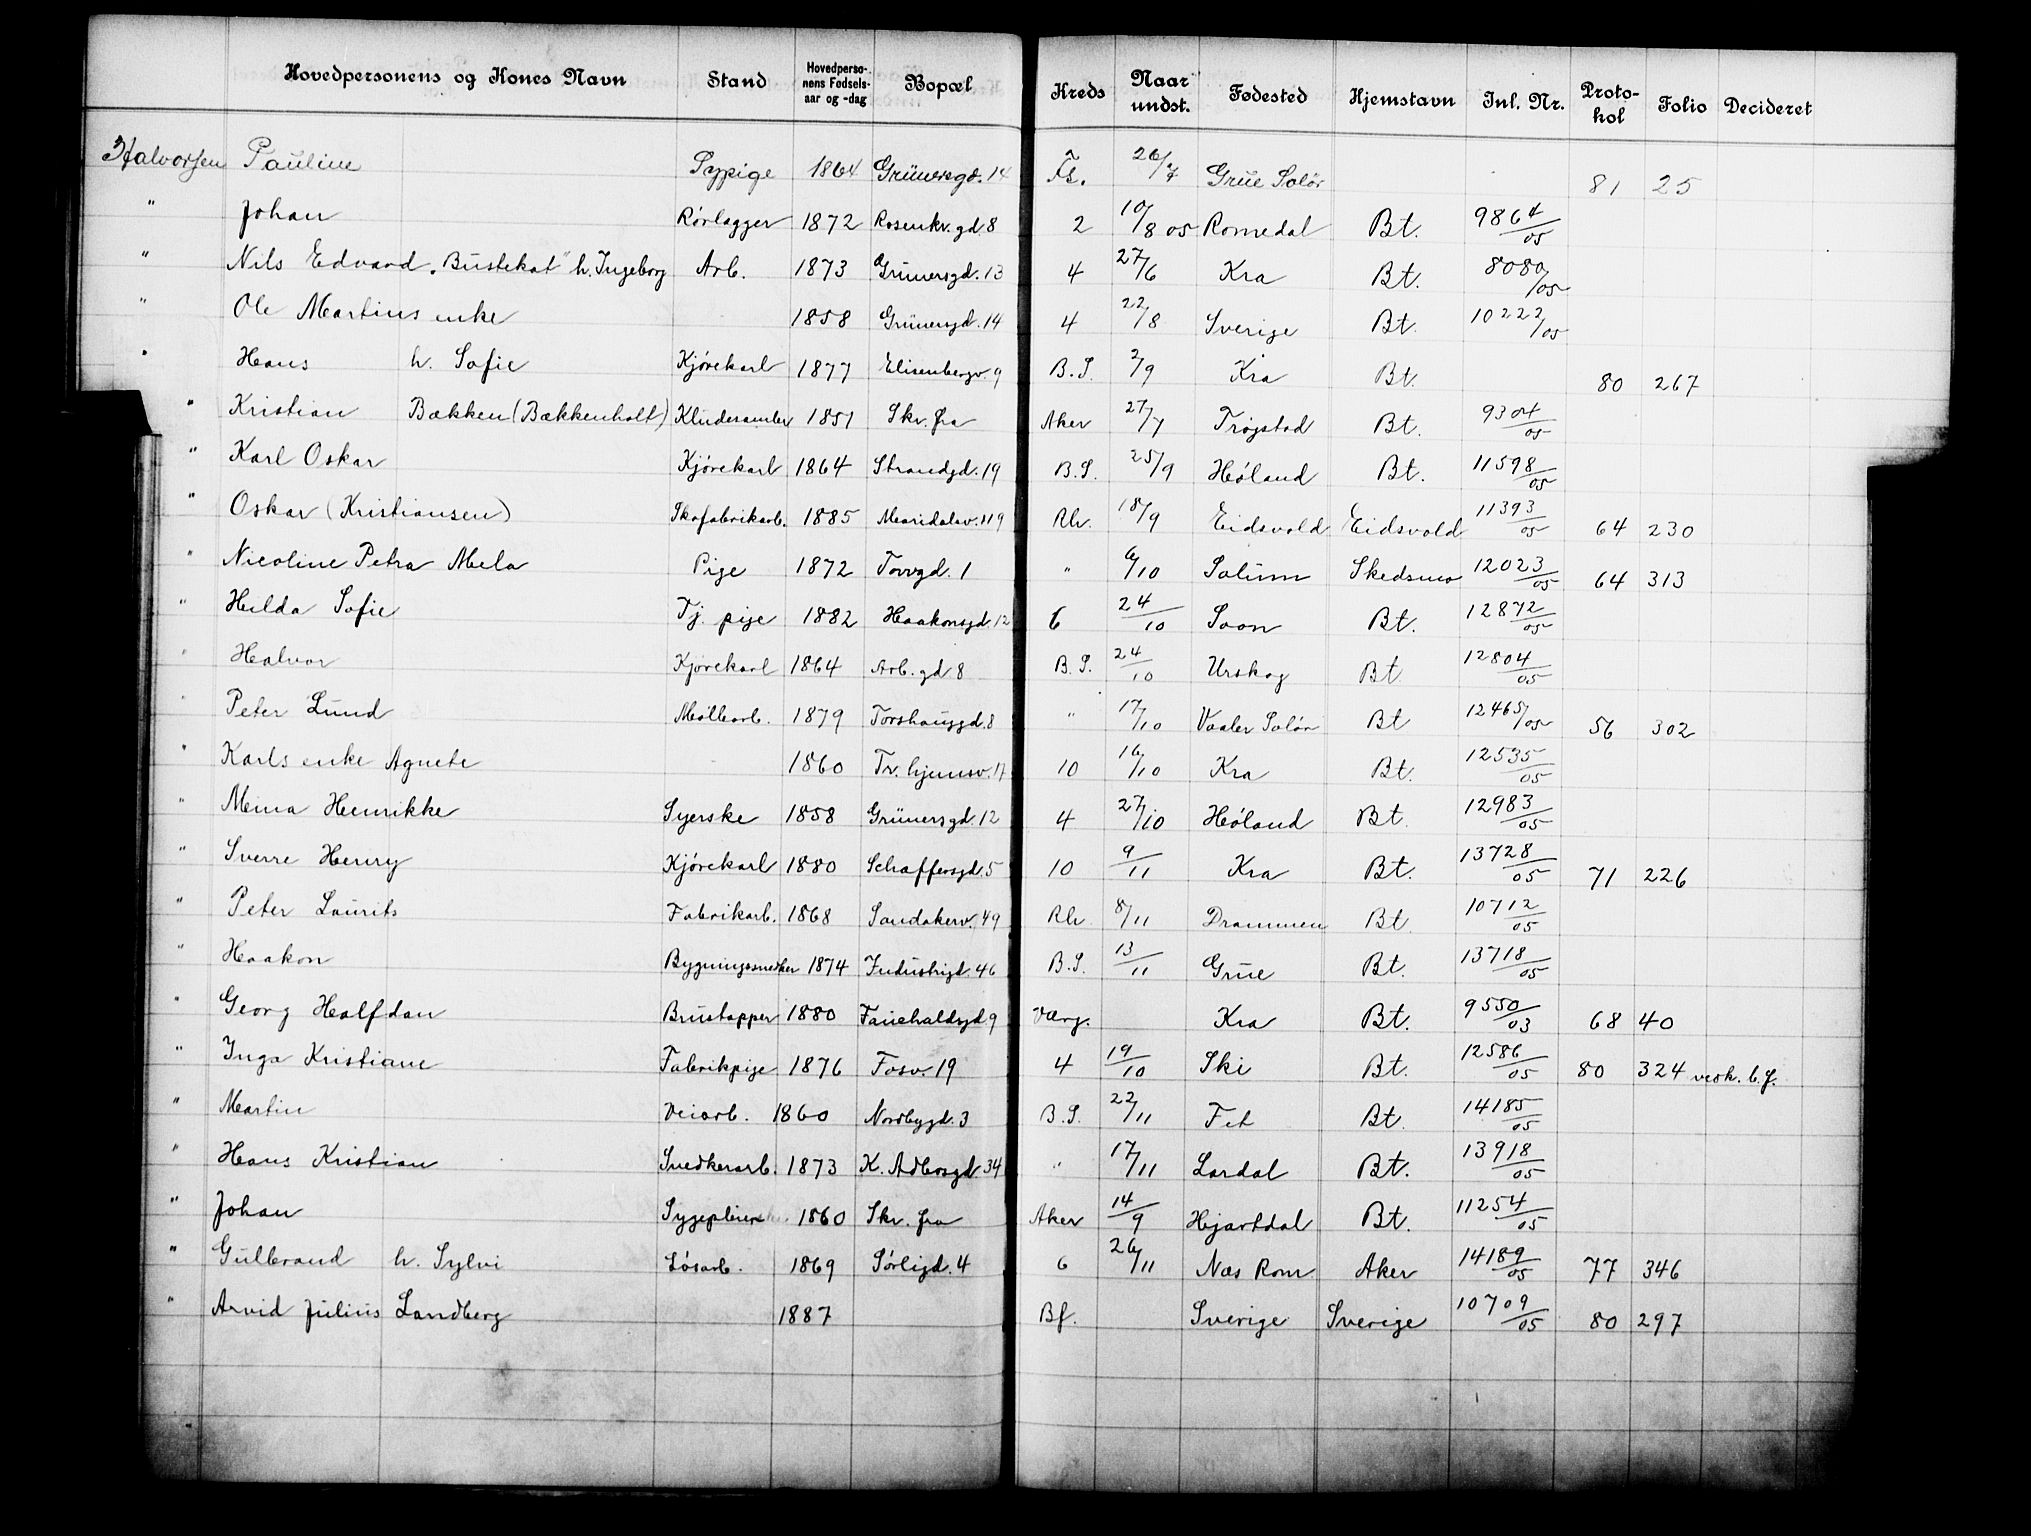 Hovedpersonens og Kones Navn Stand Hovedpersonens Fødselsaar og -dag Bopæl Kreds Naar undst. Fødested Hjemstavn Inl. Nr. Protokol Folio Decideret
Halvorsen Pauline Sypige 1864 Grünersgd. 14 Fs. 26/7 Grue Solør 81 25
" Johan Rørlægger 1872 Rosenkr. gd 8 2 10/8 05 Romedal Bt. 9864/05
" Nils Edvard „Bustekat" h. Ingeborg Arb. 1873 Grünersgd. 13 4 27/6 Kra Bt. 8080/05
" Ole Martins enke 1858 Grünersgd. 14 4 22/8 Sverige Bt. 10222/05
" Hans h. Sofie Kjørekarl 1877 Elisenbergv. 9 B.S. 2/9 Kra Bt. 80 267
" Kristian Bækken (Bækkenholt) Kludesamler 1851 Skr. fra Aker 27/7 Trøjstad Bt. 9304/05
" Karl Oskar Kjørekarl 1864 Strandgd. 19 B.S. 25/9 Høland Bt. 11598/05
" Oskar (Kristiansen) Skofabrikarb. 1885 Maridalsv. 119 Rh. 18/9 Eidsvold Eidsvold 11393/05 64 230
" Nicoline Petra Mela Pige 1872 Torvgd. 1 " 6/10 Solum Skedsmo 12023/05 64 313
" Hilda Sofie Tj. pige 1882 Haakonsgd. 12 6 24/10 Soon Bt. 12872/05
" Halvor Kjørekarl 1864 Arb. gd 8 B.S. 24/10 Urskog Bt 12804/05
" Peter Lund Møllearb. 1879 Torshauggd. 8 " 17/10 Vaaler Solør Bt 12465/05 56 302
" Karls enke Agnete 1860 Tv. hjemsv. 17 10 16/10 Kra Bt. 12535/05
" Mina Henrikke Syerske 1858 Grünersgd. 12 4 27/10 Høland Bt. 12983/05
" Sverre Henry Kjørekarl 1880 Schaffersgd. 5 10 9/11 Kra Bt. 13728/05 71 226
" Peter Laurits Fabrikarb. 1868 Sandakerv. 49 Rh. 8/11 Drammen Bt. 10712/05
" Haakon Bygningssnedker 1874 Industrigd. 46 B.S. 13/11 Grue Bt. 13718/05
" Georg Halfdan Brustapper 1880 Fauchaldsgd 9 Værg. Kra Bt. 9550/03 68 40
" Inga Kristiane Fabrikpige 1876 Fosv. 19 4 19/10 Ski Bt. 12586/05 80 324 vedk. b.f.
" Martin Veiarb. 1860 Nordbygd. 3 B.S. 22/11 Fet Bt. 14185/05
" Hans Kristian Snedkerarb. 1873 K. Adlersgd. 34 " 17/11 Lardal Bt. 13918/05
" Johan 1860 Skr. fra Aker 14/9 Hjartdal Bt. 11254/05
" Gulbrand h. Sylvi Løsarb. 1869 Sørligd. 4 6 26/11 Næs Rom. Aker 14189/05 77 346
" Arvid Julius Landberg 1887 Bf. Sverige Sverige 10709/05 80 297